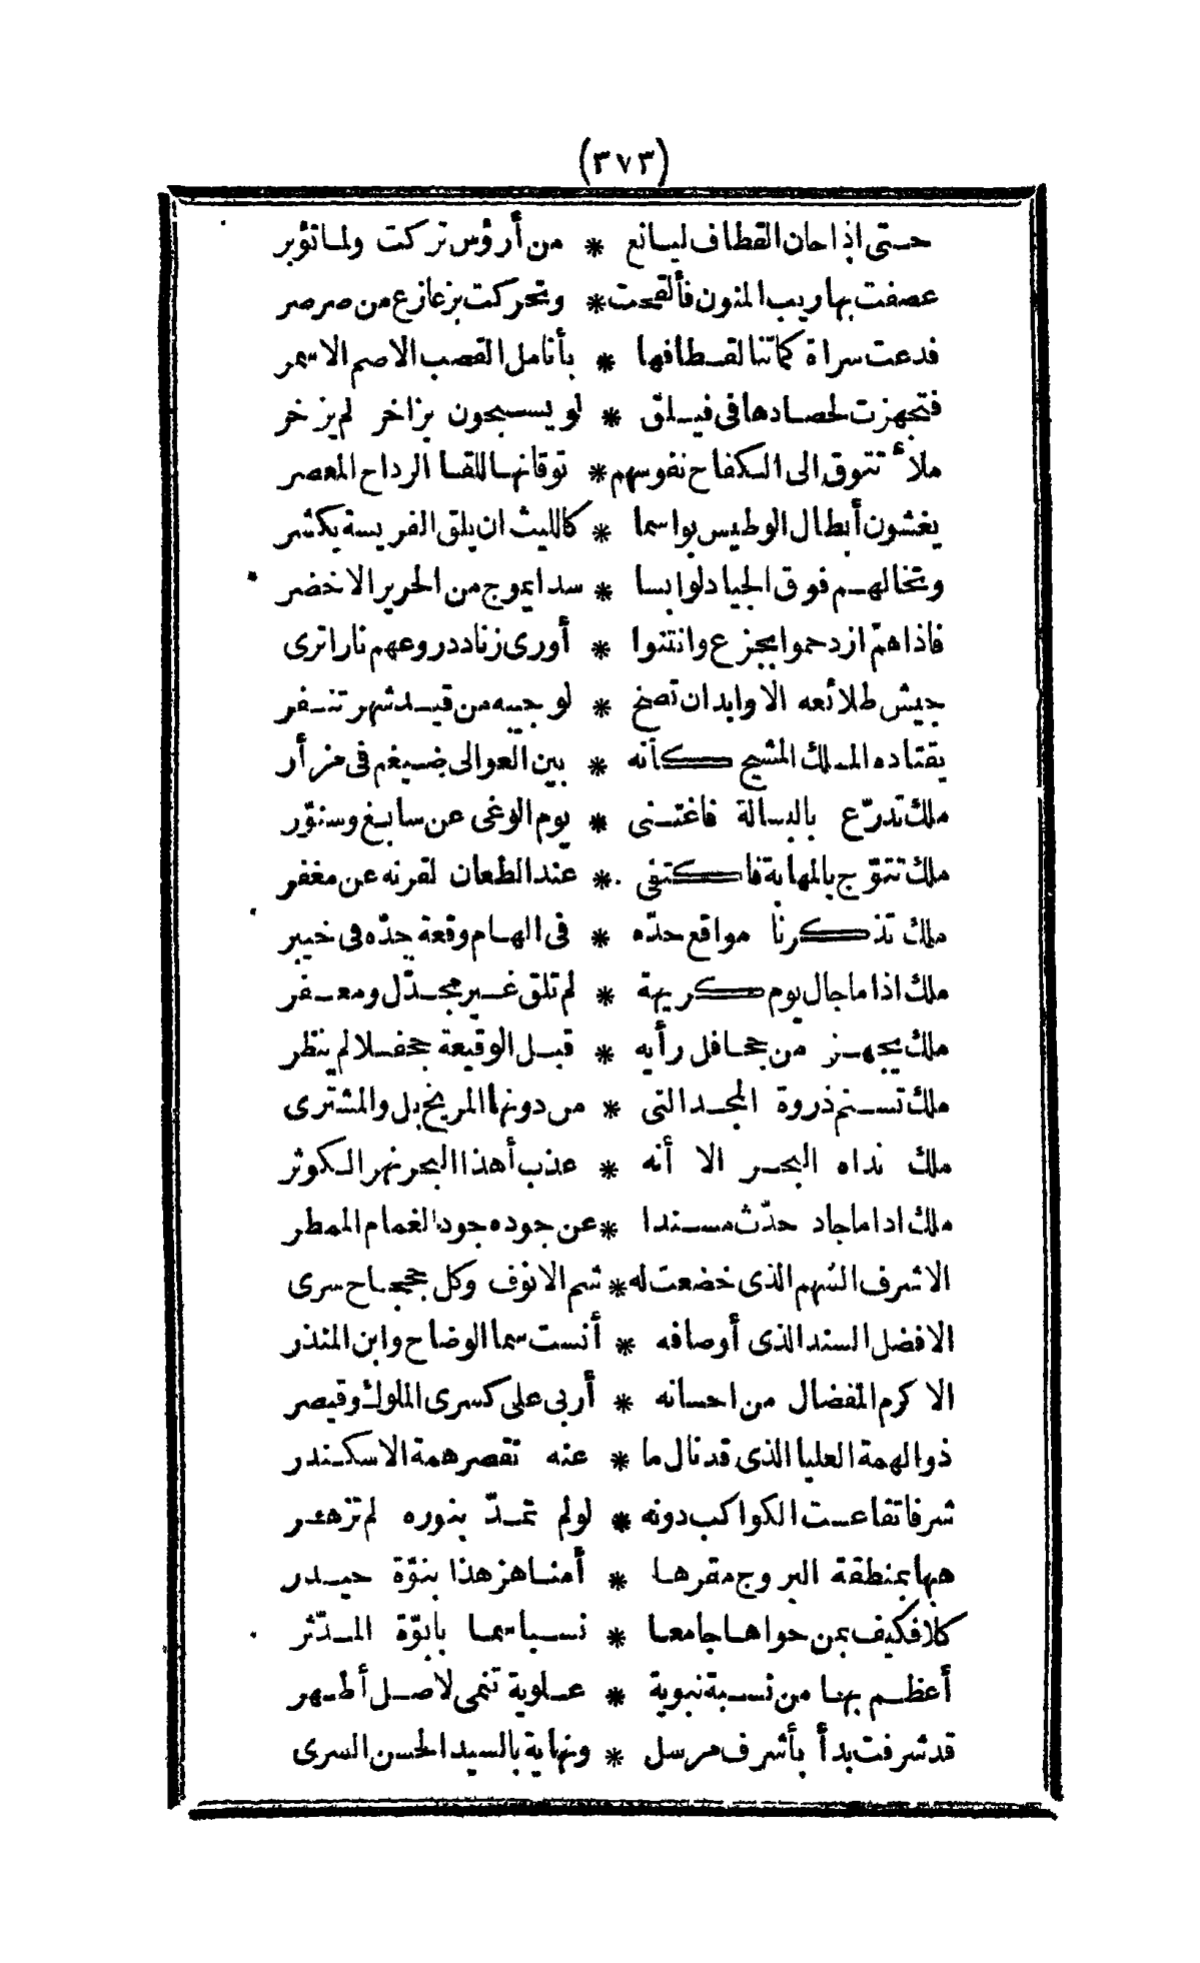 (٣٧٣)
حتى إذا حان القطاف ليانع * من أرؤس تركت ولما تؤبر
عصفت بها ريب المنون فألقحت * وتحركت بزعازع من صرصر
فدعت سراة كماتنا لقطافها * بأنامل القصب الاصم الاسمر
فتجهزت لحصادها فى فيلق * لو يسبحون بزاخر لم يزخر
ملأ تتوق الى الكفاح نفوسهم * توقانها للقا الرداح المعصر
يغشون أبطال الوطيس بواسما * كالليث ان يلق الفريسة يكشر
وتخالهم فوق الجياد لوابسا * سدا يموج من الحرير الاخضر
فاذا همّ ازدحموا بجزع وانتنوا * أورى زناد دروعهم نارا ترى
جيش طلائعه الاوابد ان تصخ * لوجيبه من قيد شهر تنفر
يقتاده الملك المشيح كأنه * بين العوالى ضيغم فى مزأر
ملك تدرّع بالبسالة فاغتنى * يوم الوغى عن سابغ وسنوّر
ملك تتوّج بالمهابة فاكتفى * عند الطعان لقرنه عن مغفر
ملك تذكرنا مواقع حدّه * فى الهام وقعة جدّه فى خيبر
ملك اذا ما جال يوم كريهة * لم تلق غير مجدّل ومعفر
ملك يجهز من جحافل رأيه * قبل الوقيعة جحفلا لم ينظر
ملك تسنم ذروة المجد التى * من دونها المريخ بل والمشترى
ملك نداه البحر الا أنه * عذب أهذا البحر نهر الكوثر
ملك اذا ما جاد حدّث مسندا * عن جوده جود الغمام الممطر
الاشرف الشهم الذى خضعت له * شم الانوف وكل جحجاح سرى
الافضل السند الذى أوصافه * أنست سما الوضاح وابن المنذر
الاكرم المفضال من احسانه * أربى على كسرى الملوك وقيصر
ذو الهمة العليا الذى قد نال ما * عنه تقصر همة الاسكندر
شرفا تقاعست الكواكب دونه * لولم تمدّ بنوره لم تزهر
هبها بمنطقة البروج مقرها * أمنا هز هذا بنوّة حيدر
كلا فكيف بمن حواها جامعا * نسبا سما بابوّة المدّثر
أعظم بها من نسبة نبوية * علوية تنمى لاصل أطهر
قد شرفت بدأ بأشرف مرسل * ونهاية بالسيد الحسن السرى